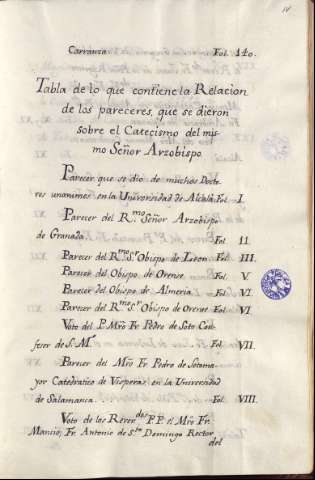 Carranza Fol. 140.
Tabla de lo que contiene la Relacion
de los pareceres, que se dieron
sobre el Catecismo del mis
mo Señor Arzobispo.
Parecer que se dio de muchos Docto
res unanimes en la Universidad de Alcalá. Fol. I.
Parecer del R.mo Señor Arzobispo
de Granada. Fol. II.
Parecer del R.mo S.r Obispo de Leon Fol. III.
Parecer del Obispo de Orense. Fol. V.
Parecer del Obispo de Almeria. Fol. VI.
Parecer del R.mo S.r Obispo de Orense Fol. VI
Voto del P. Mro Fr. Pedro de Soto Con
fesor de S. M. Fol. VII.
Parecer del Mro Fr. Pedro de Sotoma
yor Catedratico de Visperas, en la Universidad
de Salamanca. Fol. VIII.
Voto de los Rever.dos P.P. el Mro Fr.
Mancio; Fr. Antonio de S.to Domingo Rector
del